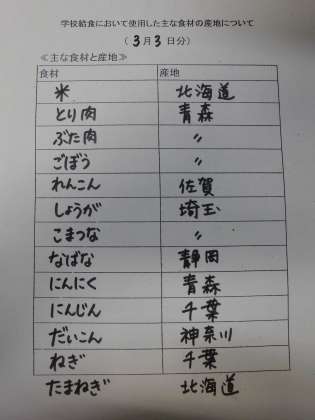 学校給食において使用した主な食材の産地について
（3月3日分）
≪主な食材と産地≫
食材 産地
米 北海道
とり肉 青森
ぶた肉 〃
ごぼう 〃
れんこん 佐賀
しょうが 埼玉
こまつな 〃
なばな 静岡
にんにく 青森
にんじん 千葉
だいこん 神奈川
ねぎ 千葉
たまねぎ 北海道